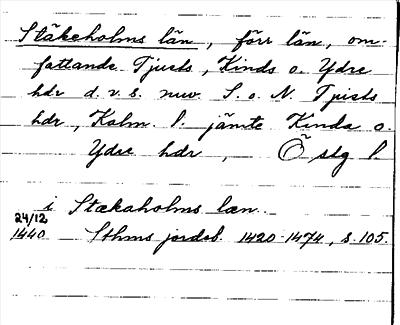 Stäkeholms län, förr län, om-
fattande Tjusts, Kinds o. Ydre
hdr d.v.s. nuv. S. o. N. Tjusts
hdr, Kalm. l. jämte Kinda o.
Ydre hdr, Östg l.
i Stækaholms læn.
24/12
1440 Sthms jordeb. 1420-1474, s. 105.